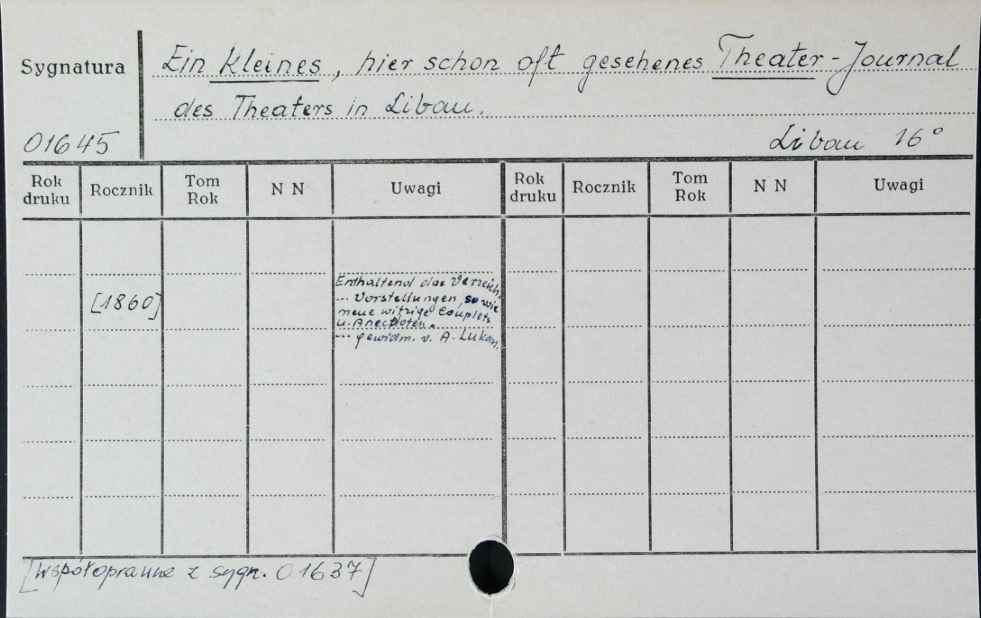 Sygnatura
Ein kleines, hier schon oft gesehenes Theater-Journal
des Theaters in Libau.
01645
Libau 16°
Rok druku Rocznik Tom Rok N N Uwagi Rok druku Rocznik Tom Rok N N Uwagi
Enthaltend das Verzeich.
[1860] ... Vorstellungen, sowie
neue witzige Couplets
u. Anecdoten.
... gewidm. v. A. Lukas.
[Współoprawne z sygn. 01637]